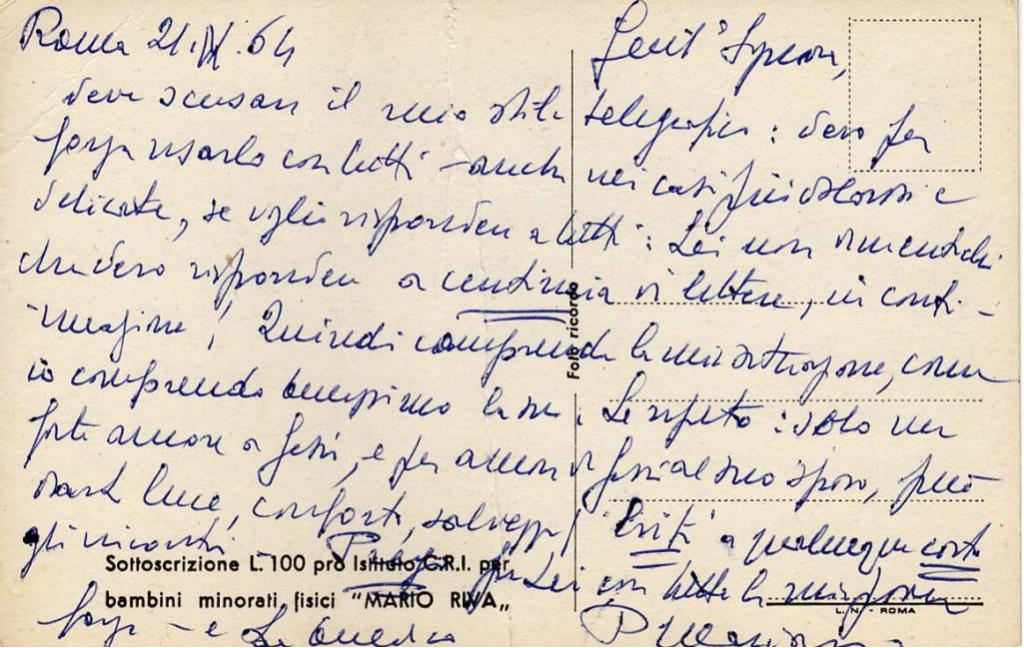 Roma 21.IX.64
Gent. Signora,
deve scusare il mio stile telegrafico: devo per
forza usarlo con tutti - anche nei casi più dolorosi e
delicati, se voglio rispondere a tutti: Lei non dimentichi
che devo rispondere a centinaia di lettere, in conti-
nuazione! Quindi comprenda la mia situazione, come
io comprendo benissimo la sua. Le ripeto: solo un
forte amore a Gesù, e per amore di Gesù al suo sposo, può
darle luce, conforto, salvezza! Eviti a qualunque costo
gli incontri - Prego per Lei con tutta la mia
forza - e La benedico
P. Mariano
Foto ricordo
Sottoscrizione L. 100 pro Istituto C.R.I. per
bambini minorati fisici "MARIO RIVA"
L. N. - ROMA